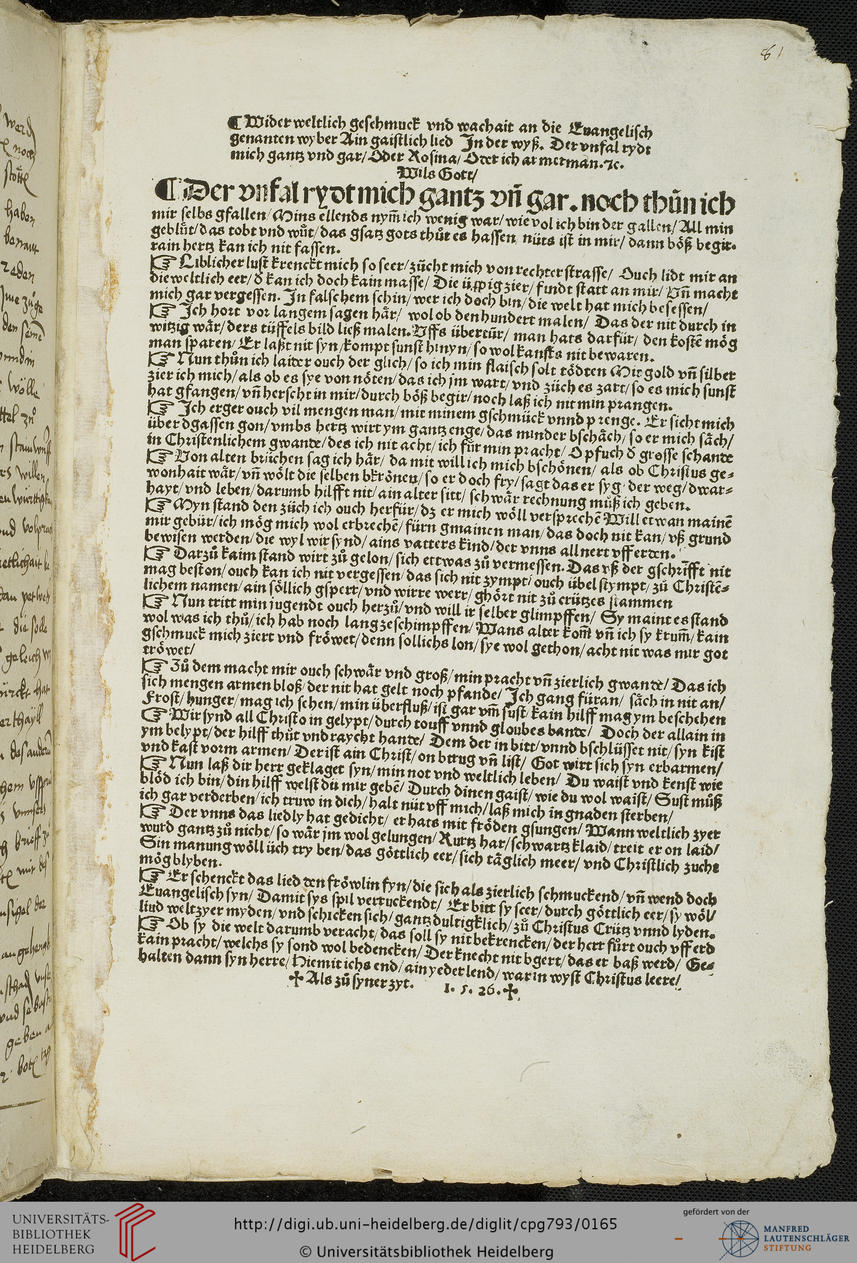 61
¶ Wider weltlich geschmuck vnd wachait an die Euangelisch
genanten wyber Ain gaistlich lied In der wyß. Der vnfal rydt
mich gantz vnd gar/ Oder Rosina/ Oder ich armetman.⁊c.
Wils Gott/
¶ Der vnfal rydt mich gantz vñ gar. noch thůn ich
mir selbs gfallen/ Mins ellends nym̃ ich wenig war/ wie vol ich bin der gallen/ All min
geblůt/ das tobt vnd wůt/ das gsatz gots thůt es hassen/ nüts ist in mir/ dann böß begir.
rain hertz kan ich nit fassen.
☞ Liblicher lust krenckt mich so seer/ zücht mich von rechter strasse/ Ouch lidt mir an
die weltlich eer/ d̄ kan ich doch kain masse/ Die üppig zier/ findt statt an mir/ Vñ macht
mich gar vergessen. In falschem schin/ wer ich doch bin/ die welt hat mich besessen/
☞ Ich hort vor langem sagen här/ wol ob den hundert malen/ Das der nit durch in
witzig wär/ ders tüffels bild ließ malen. Vffs übertür/ man hats darfür/ den kostē mög
man sparen/ Er laßt nit syn/ kompt sunst hinyn/ so wol kansts nit bewaren.
☞ Nun thůn ich laider ouch der glich/ so ich min flaisch solt tödten Mit gold vñ silber
zier ich mich/ als ob es sye von nöten/ das ich jm wart/ vnd züch es zart/ so es mich sunst
hat gfangen/ vñ herscht in mir/ durch böß begir/ noch laß ich nit min prangen.
☞ Ich erger ouch vil mengen man/ mit minem gschmück vnnd prenge. Er sicht mich
über dgassen gon/ vmbs hertz wirt ym gantz enge/ das minder bschäch/ so er mich säch/
in Christenlichem gwande/ des ich nit acht/ ich für min pracht/ O pfuch d̄ grosse schande
☞ Von alten brüchen sag ich här/ da mit will ich mich bschönen/ als ob Christus ge-
wonhait wär/ vñ wölt die selben bkrönen/ so er doch fry/ sagt das er syg. der weg/ dwar-
hayt/ vnd leben/ darumb hilfft nit/ ain alter sitt/ schwär rechnung můß ich geben.
☞ Myn stand den züch ich ouch herfür/ dz er mich wöll versprechē Will etwan mainē
mir gebür/ ich mög mich wol erbrechē/ fürn gmainen man/ das doch nit kan/ vß grund
bewisen werden/ die wyl wir synd/ ains vatters kind/ der vnns all nert vff erden.
☞ Darzů kaim stand wirt zů gelon/ sich ettwas zů vermessen. Das vß der gschrifft nit
mag beston/ ouch kan ich nit vergessen/ das sich nit zympt/ ouch übel stympt/ zů Christē-
lichem namen/ ain söllich gsperr/ vnd wirre werr/ ghört nit zů crützes stammen
☞ Nun tritt min jugendt ouch herzů/ vnd will ir selber glimpffen/ Sy maint es stand
wol was ich thů/ ich hab noch lang ze schimpffen/ Wans alter kom̃ vñ ich sy krum̃/ kain
gschmuck mich ziert vnd fröwet/ denn sollichs lon/ sye wol gethon/ acht nit was mir got
tröwet/
☞ Zů dem macht mir ouch schwär vnd groß/ min pracht vñ zierlich gwande/ Das ich
sich mengen armen bloß/ der nit hat gelt noch pfande/ Ich gang füran/ säch in nit an/
Frost/ hunger/ mag ich sehen/ min überfluß/ ist gar vm̃ sust/ kain hilff mag ym beschehen
☞ Wir synd all Christo in gelypt/ durch touff vnnd gloubes bande/ Doch der allain in
ym belypt/ der hilff thůt vnd raycht hande/ Dem der in bitt/ vnnd bschlüsset nit/ syn kist
vnd kast vorm armen/ Der ist ain Christ/ on btrug vñ list/ Got wirt sich syn erbarmen/
☞ Nun laß dir herr geklaget syn/ min not vnd weltlich leben/ Du waist vnd kenst wie
blöd ich bin/ din hilff welst du mir gebē/ Durch dinen gaist/ wie du wol waist/ Sust můß
ich gar verderben/ ich truw in dich/ halt nüt vff mich/ laß mich in gnaden sterben/
☞ Der vnns das liedly hat gedicht/ er hats mit fröden gsungen/ Wann weltlich zyer
wurd gantz zů nicht/ so wär jm wol gelungen/ Kurtz har/ schwartz klaid/ treit er on laid/
Sin manung wöll üch tryben/ das göttlich eer/ sich täglich meer/ vnd Christlich zucht
mög blyben.
☞ Er schenckt das lied den fröwlin fyn/ die sich als zierlich schmuckend/ vñ wend doch
Euangelisch syn/ Damit sys spil vertuckendt/ Er bitt sy seer/ durch göttlich eer/ sy wöl/
lind weltzyer myden/ vnd schicken sich/ gantz dultigklich/ zů Christus Crütz vnnd lyden.
☞ Ob sy die welt darumb veracht/ das soll sy nit bekrencken/ der herr fürt ouch vff erd
kain pracht/ welchs sy sond wol bedencken/ Der knecht nit bgert/ das er baß werd/ Ge-
halten dann syn herre/ Hiemit ichs end/ ain yeder lend/ war in wyst Christus leere/
✢ Als zů syner zyt. 1. 5. 26. ✢
UNIVERSITÄTS-
BIBLIOTHEK
HEIDELBERG
http://digi.ub.uni-heidelberg.de/diglit/cpg793/0165
© Universitätsbibliothek Heidelberg
gefördert von der
MANFRED
LAUTENSCHLÄGER
STIFTUNG